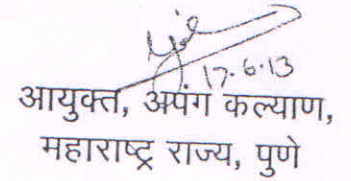 17.6.13
आयुक्त, अपंग कल्याण,
महाराष्ट्र राज्य, पुणे